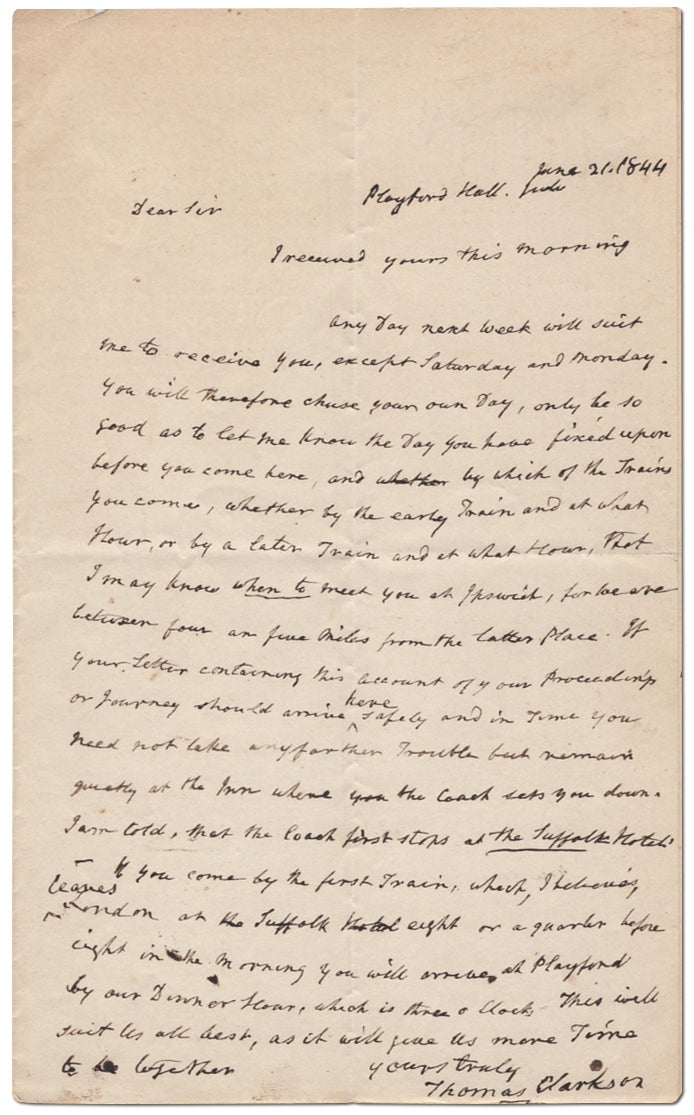 June 21. 1844
Playford Hall.
Dear Sir
I received yours this morning
any Day next week will suit
me to receive you, except Saturday and Monday.
You will therefore chuse your own Day, only be so
good as to let me know the Day you have fixed upon
before you come here, and whether by which of the Trains
you come, whether by the early Train and at what
Hour, or by a later Train and at what Hour, that
I may know when to meet you at Ipswich, for we are
between four an five miles from the latter Place. If
your Letter containing this account of your Proceedings
or Journey should arrive here safely and in Time you
need not take any farther Trouble but remain
quietly at the Inn where you the Coach sets you down.
I am told, that the Coach first stops at the Suffolk Hotel.
If you come by the first Train, which, I believe,
leaves
London at the Suffolk Hotel eight or a quarter before
eight in the morning you will arrive at Playford
by our Dinner Hour, which is three o Clock. This will
suit us all best, as it will give us more Time
to be together
yours truly
Thomas Clarkson